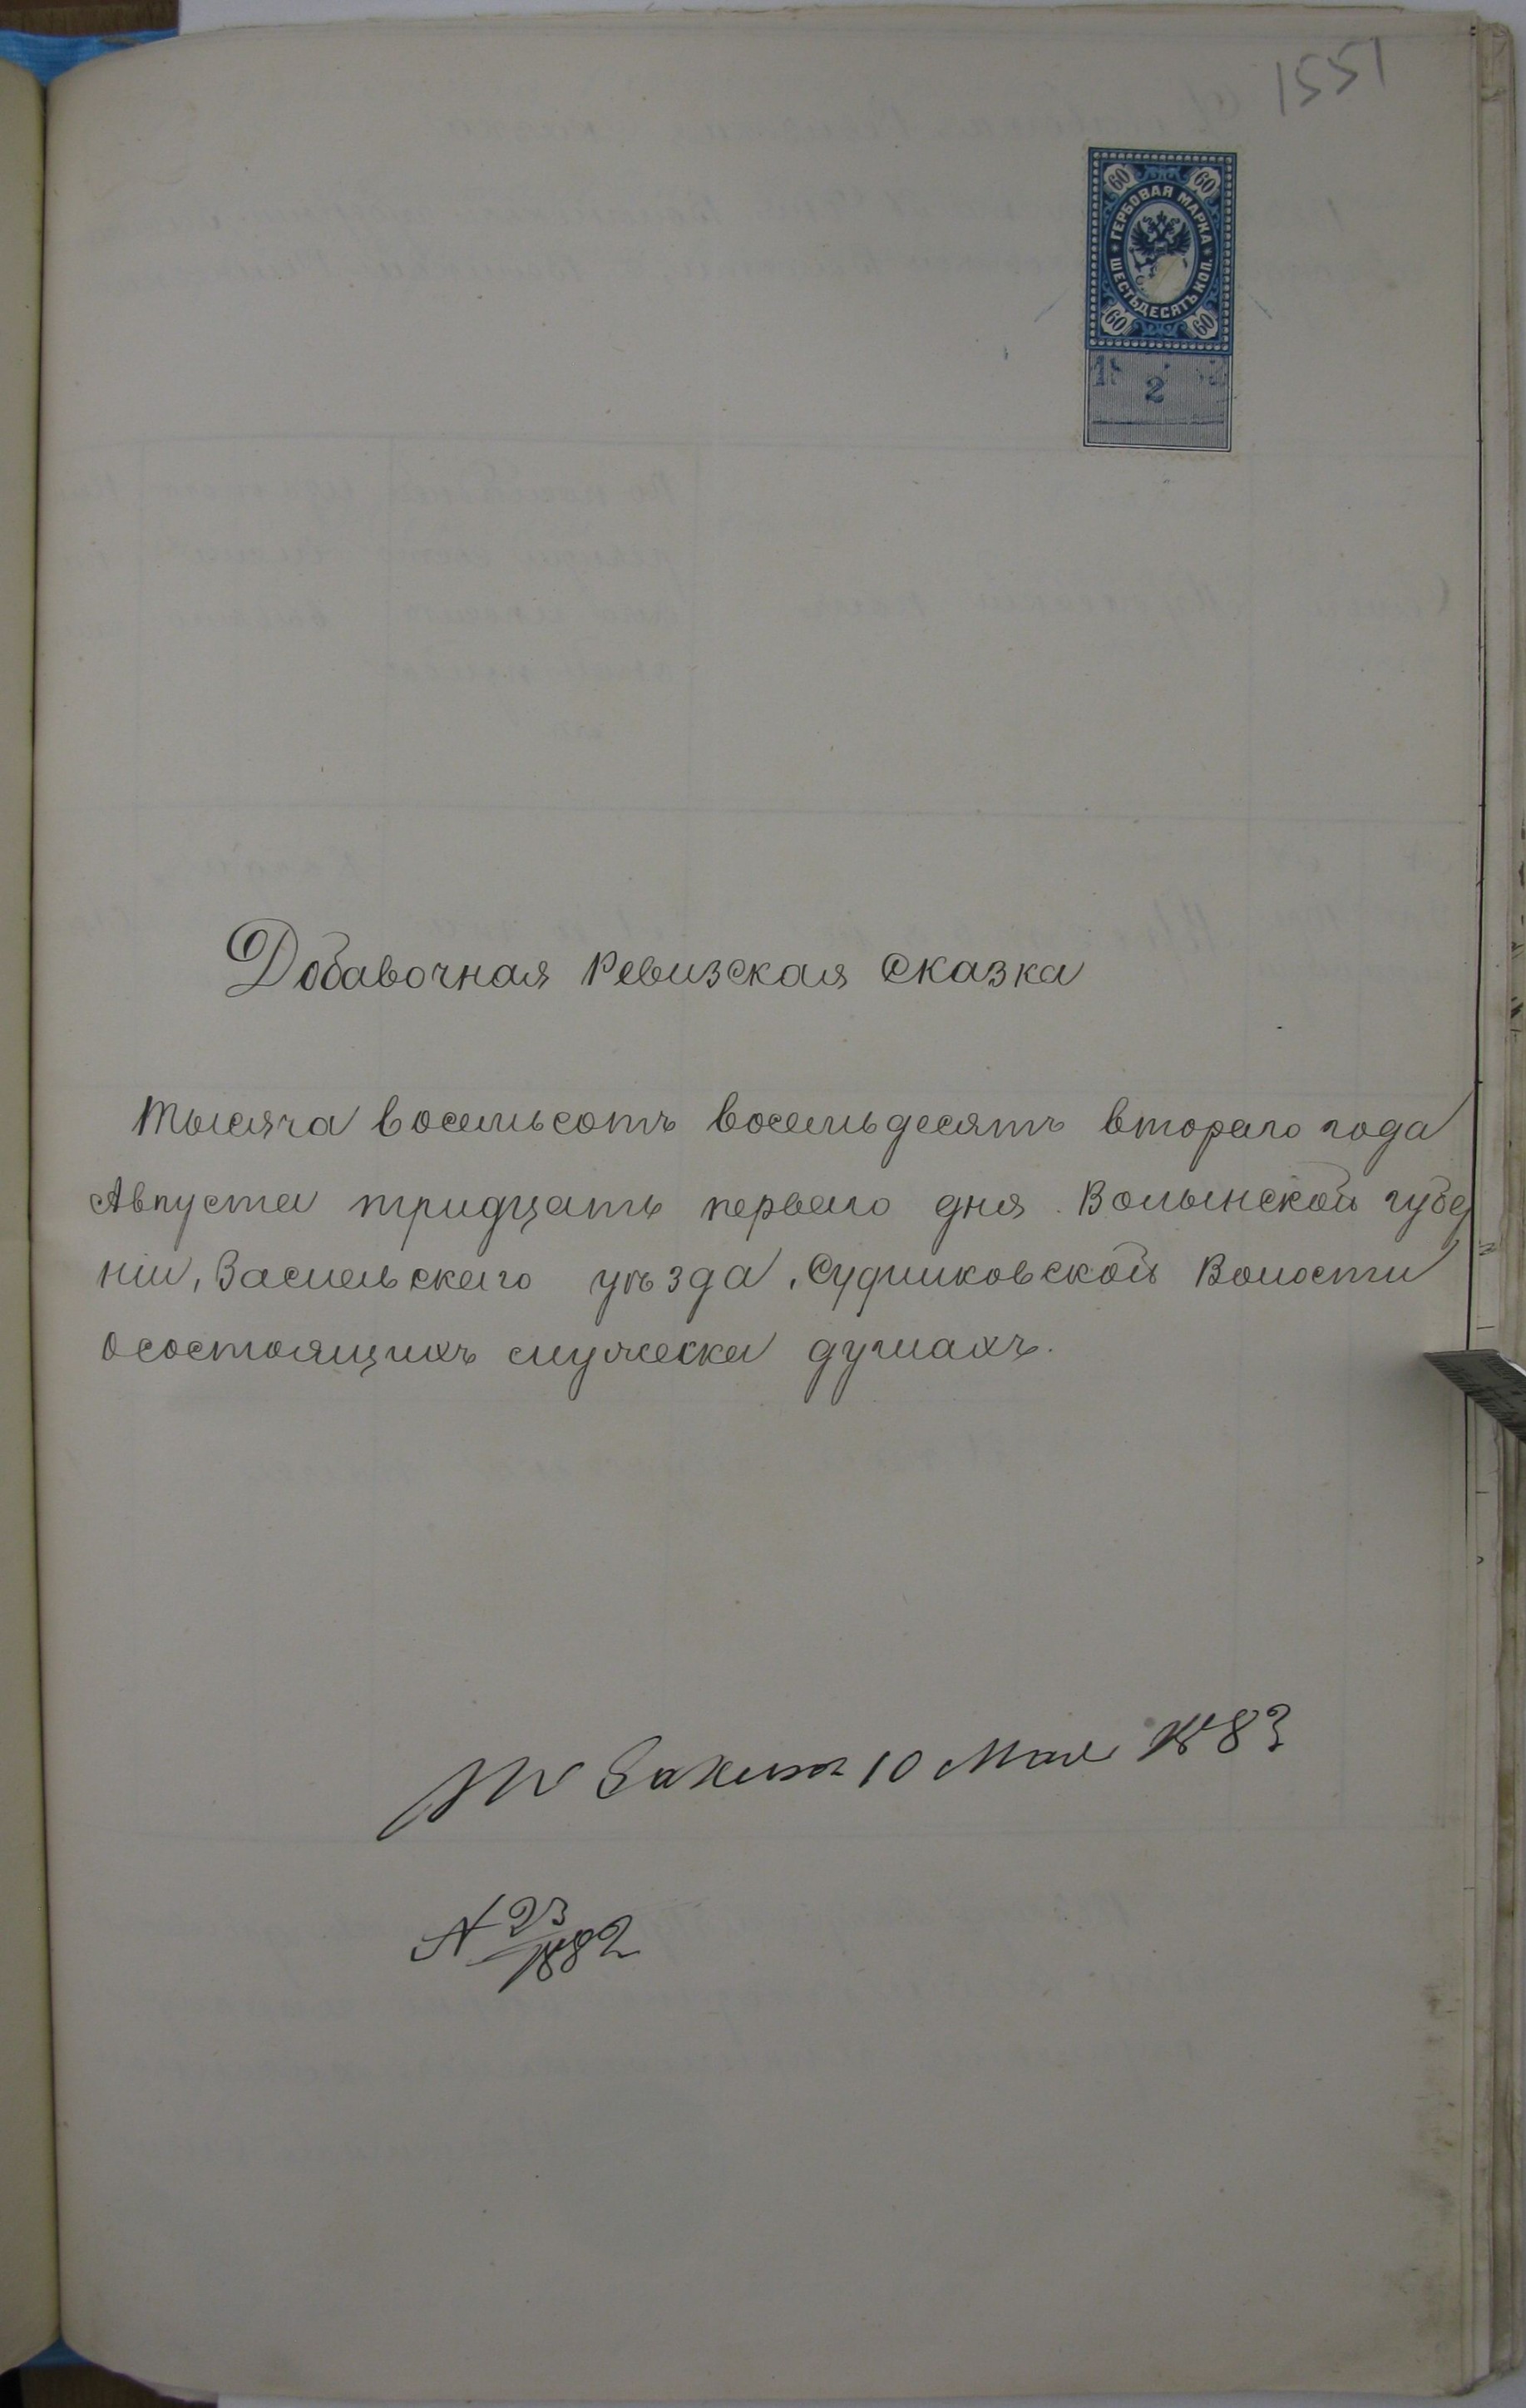 1551
60 60
ГЕРБОВАЯ МАРКА
ШЕСТЬДЕСЯТЬ КОП.
60 60
2
Добавочная Ревизская Сказка
Тысяча восемьсотъ восемьдесятъ втораго года
Августа тридцать перваго дня Волынской губер
ніи, Заславскаго уѣзда, Судилковской Волости
осостоящихъ мужеска душахъ.
10 Мая 1883
N 23/1882